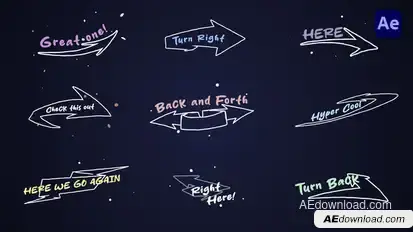 Great one!
Turn Right
HERE
Ae
Check this out
Back and Forth
Hyper Cool
HERE WE GO AGAIN
Right
Here!
Turn Back
AEdownload.com
AEdownload.com